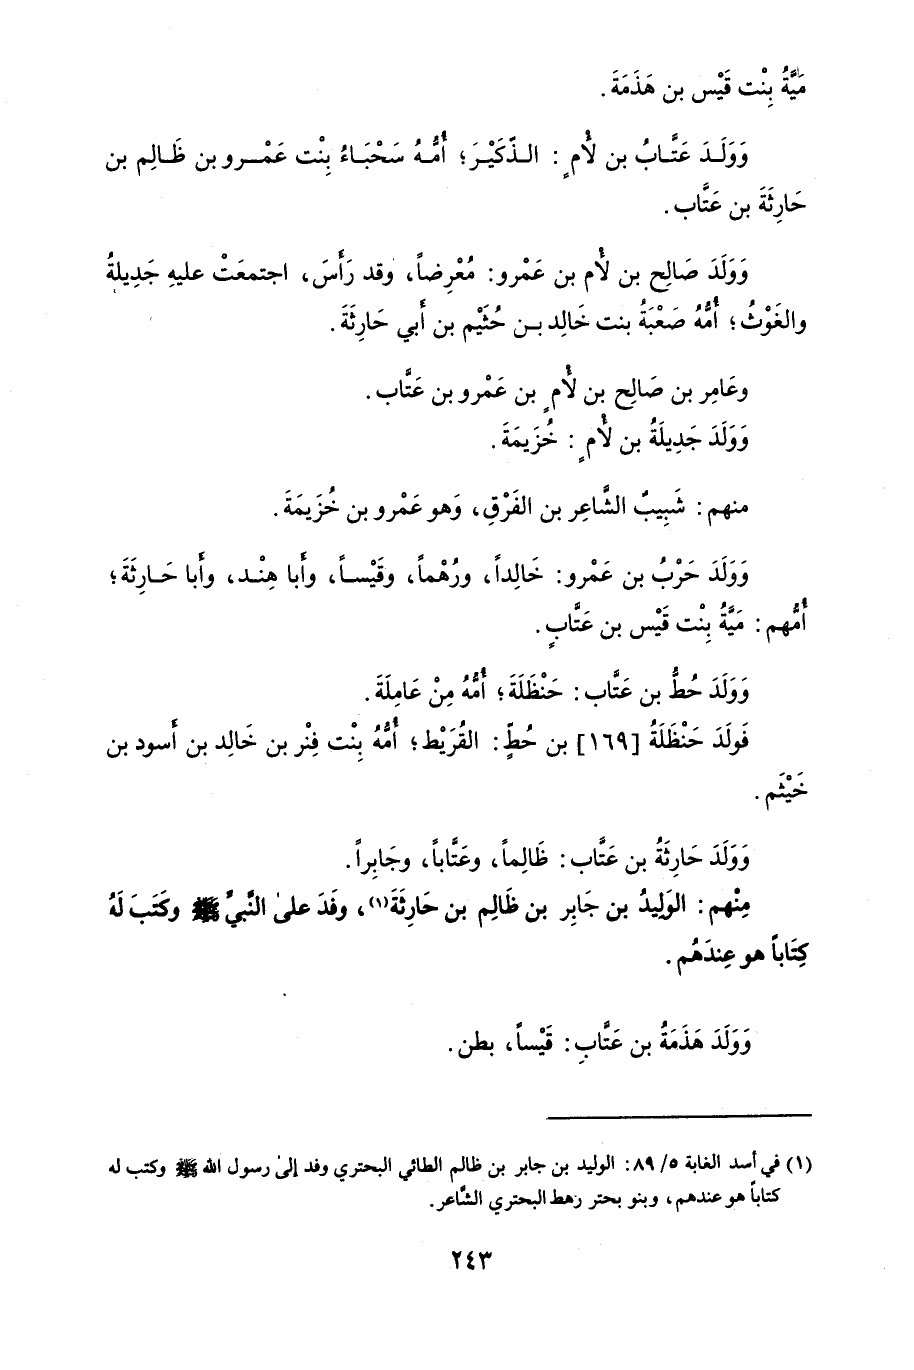 مَيَّةُ بِنْت قَيْس بن هَذَمَةَ.
وَوَلَدَ عَتَّابُ بن لأْمٍ : الذّكَيْرَ؛ أُمُّهُ سَحْبَاءُ بِنْت عَمْرو بن ظَالِم بن
حَارِثَةَ بن عَتَّاب.
وَوَلَدَ صَالِح بن لأْم بن عَمْرو: مُعْرِضاً، وقد رَأَسَ، اجتمعَتْ عليهِ جَدِيلةُ
والغَوْثُ؛ أُمُّهُ صَعْبَةُ بنت خَالِد بن خُثَيْم بن أَبي حَارِثَةَ.
وعَامِر بن صَالِح بن لأْمٍ بن عَمْرو بن عَتَّاب.
وَوَلَدَ جَدِيلَةُ بن لأْمٍ : خُزَيمَةَ.
منهم: شَبِيبُ الشَّاعِر بن الفَرْقِ، وَهو عَمْرو بن خُزَيمَةَ.
وَوَلَدَ حَرْبُ بن عَمْرو: خَالِداً، ورُهْماً، وقَيْساً، وأَبا هِنْد، وأَبا حَارِثَةَ؛
أُمُّهم: مَيَّةُ بِنْت قَيْس بن عَتَّابٍ.
وَوَلَدَ حُطُّ بن عَتَّاب: حَنْظَلَةَ؛ أُمُّهُ مِنْ عَامِلَةَ.
فَولَدَ حَنْظَلَةُ [١٦٩] بن حُطٍّ: القُرَيْط؛ أُمُّهُ بِنْت فِنْر بن خَالِد بن أَسود بن
خَيْثَم.
وَوَلَدَ حَارِثَةُ بن عَتَّاب: ظَالِماً، وعَتَّاباً، وجَابِراً.
مِنْهم: الوَلِيدُ بن جَابِر بن ظَالِم بن حَارِثَةَ(١)، وفَدَ علىٰ النَّبيِّ ﷺ وكَتَبَ لَهُ
كِتَاباً هو عِندَهُم.
وَوَلَدَ هَذَمَةُ بن عَتَّابِ: قَيْساً، بطن.
(١) في أسد الغابة ٥/ ٨٩: الوليد بن جابر بن ظالم الطائي البحتري وفد إلىٰ رسول الله ﷺ وكتب له
كتاباً هو عندهم، وبنو بحتر رهط البحتري الشَّاعر.
٢٤٣